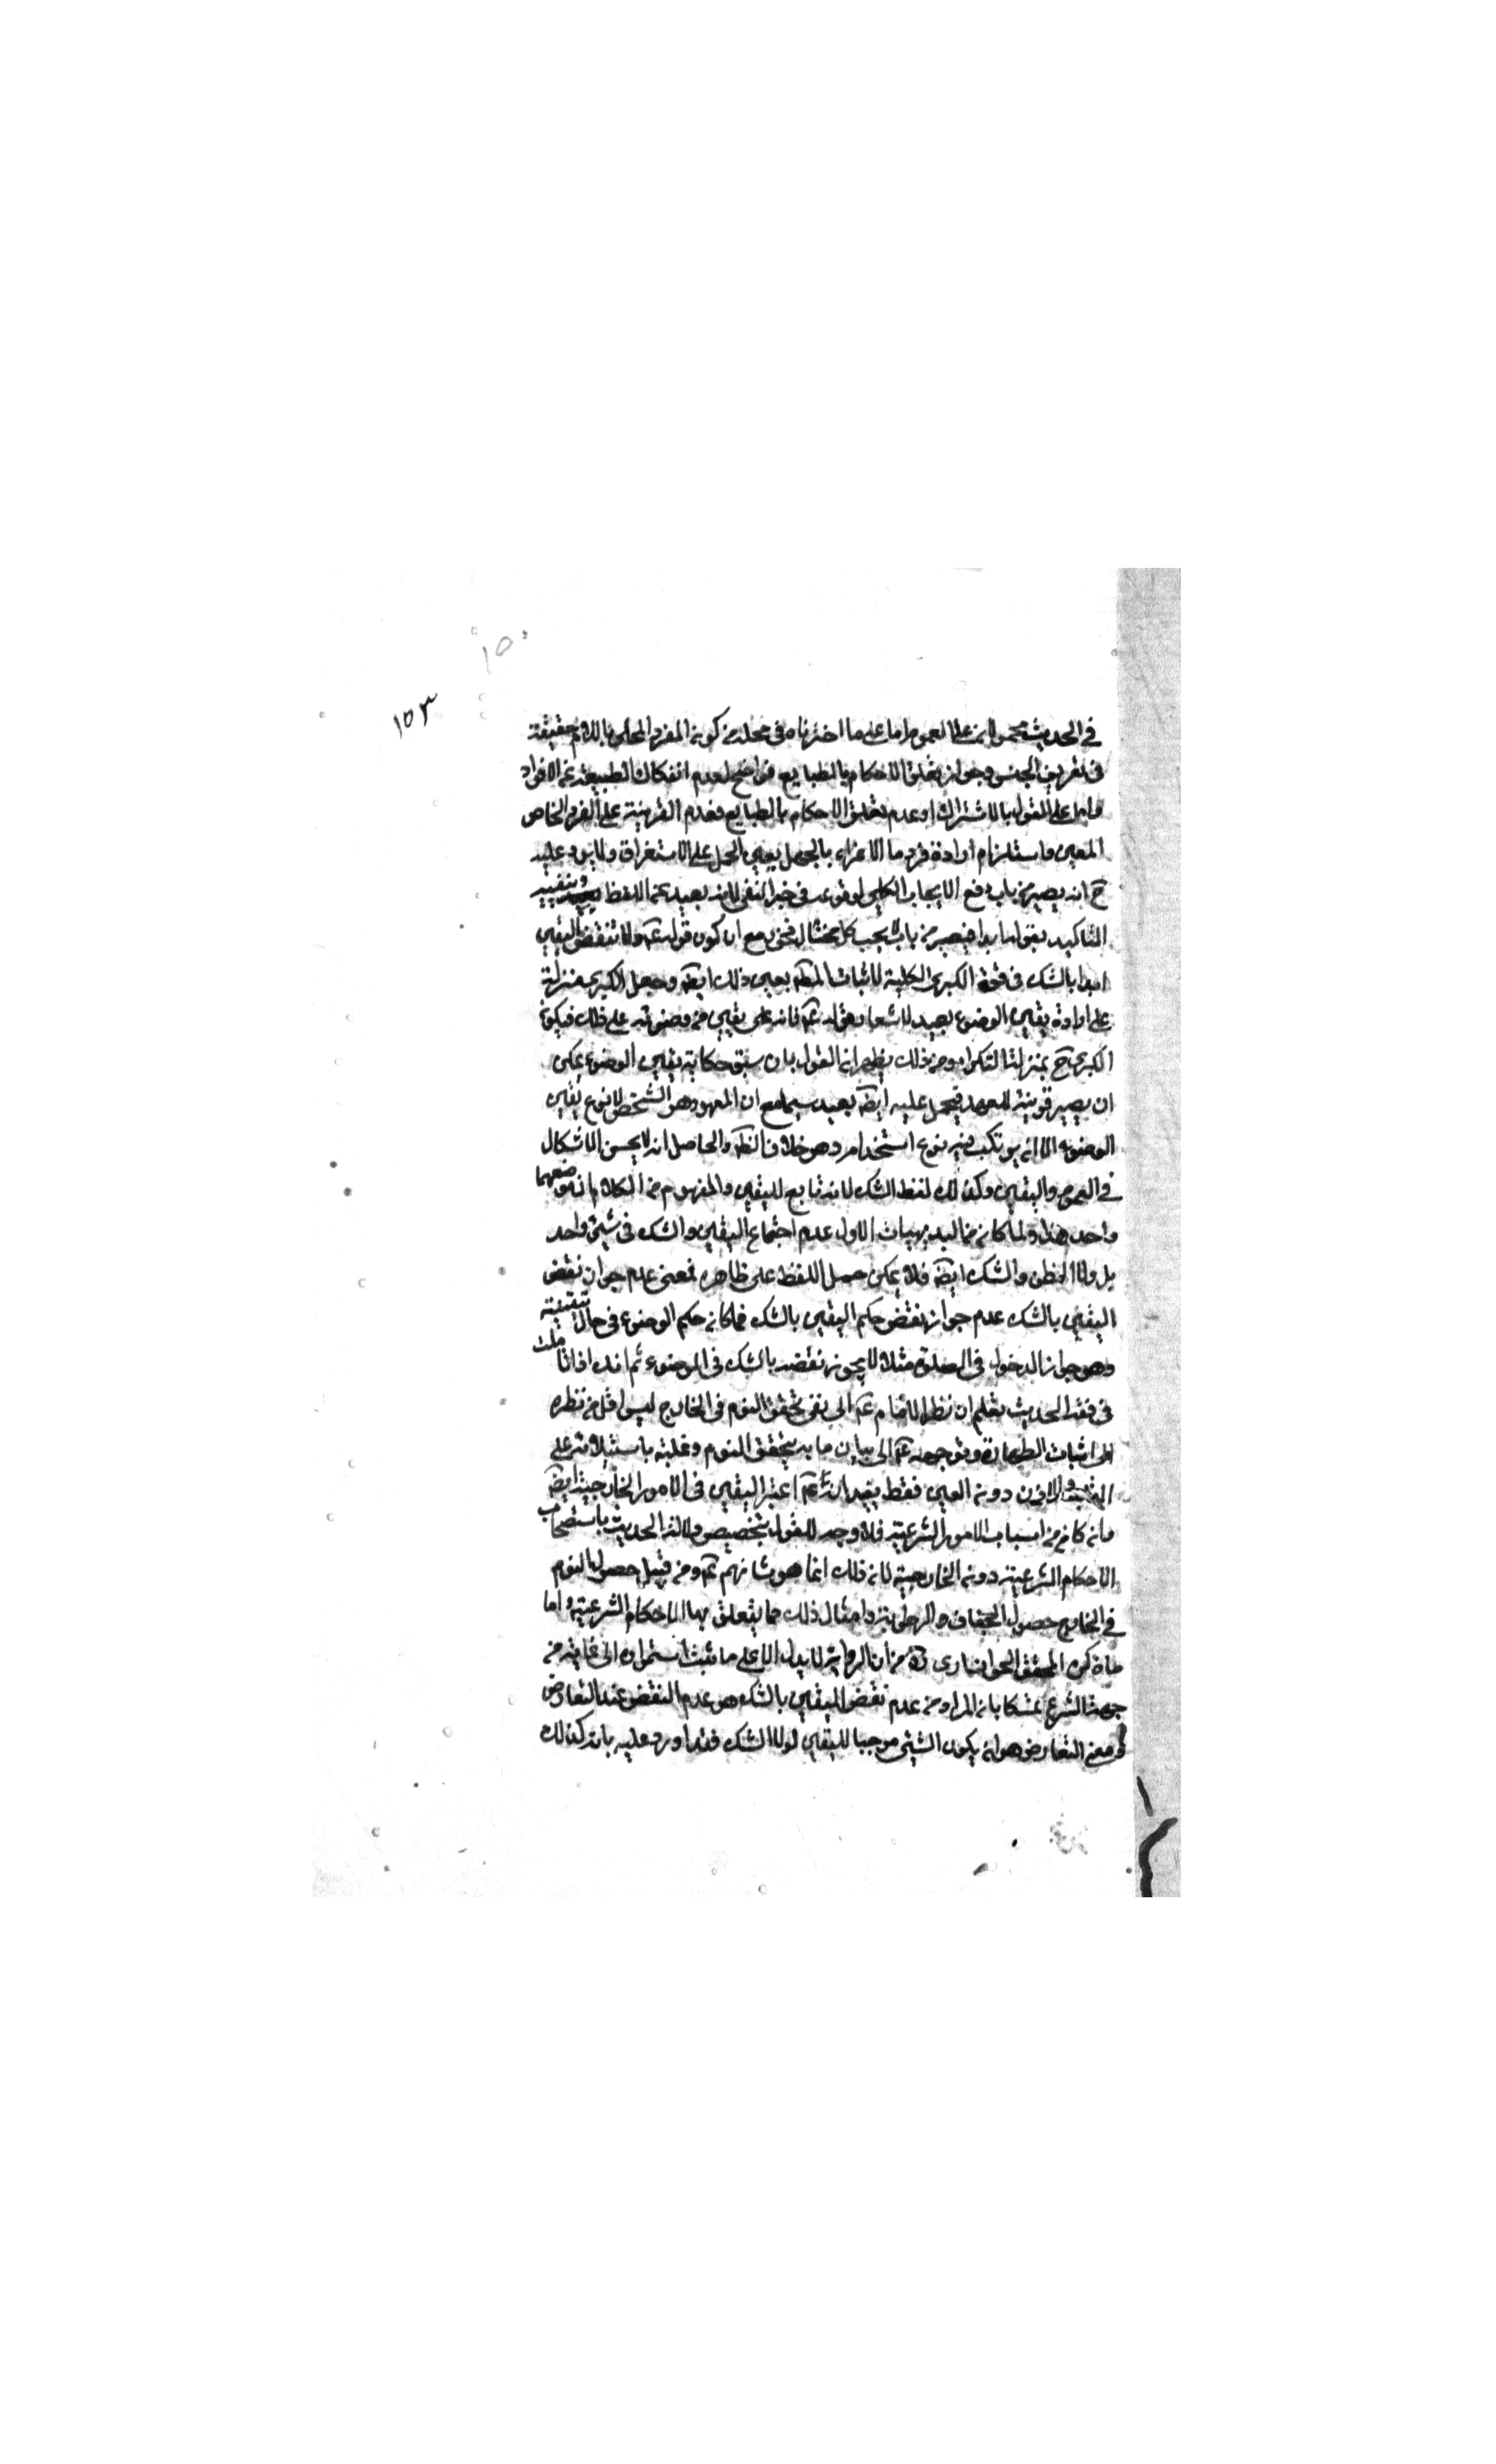 ١٥٠
١٥٣
في الحديث محمولان على العموم اما على ما اخترناه في محله من كون المفرد المحلى باللام حقيقة
في تعريف الجنس وجواز تعلق الاحكام بالطبايع فواضح لعدم انفكاك الطبيعة عن الافراد
واما على القول بالاشتراك او عدم تعلق الاحكام بالطبايع فعدم القرينة على الفرد الخاص
المعين واستلزام ارادة فرد ما الاغراء بالجهل يعين الحمل على الاستغراق ولا يرد عليه
ح انه يصير من باب رفع الايجاب الكلي لوقوعه في خبر النفي لانه بعيد عن اللفظ وينفيه
التاكيد بقوله ابدا فيصير من باب لا يحب كل مختال فخور مع ان كون قوله عم ولا تنقض اليقين
ابدا بالشك في قوة الكبرى الكلية لاثبات المط يعين ذلك ايضه وجعل الكبرى منزلة
على ارادة يقين الوضوء بعيد لاشعار قوله عم فانه على يقين من وضوئه على ذلك فيكون
الكبرى ح بمنزلة التكرار ومن ذلك يظهر ان القول بان سبق حكاية يقين الوضوء يمكن
ان يصير قرينة للعهد فيحمل عليه ايضه بعيد سيما مع ان المعهود هو الشخص لا نوع يقين
الوضوء الا ان يرتكب فيه نوع استخدام وهو خلاف الظه والحاصل انه لا يحسن الاشكال
في العموم واليقين وكذلك لفظ الشك لانه تابع لليقين والمفهوم من الكلام ان موضعهما
واحد هذا ولما كان من البديهيات الاول عدم اجتماع اليقين والشك في شيئ واحد
بل ولا الظن والشك ايضه فلا يمكن حمل اللفظ على ظاهره فمعنى عدم جواز نقض
اليقين بالشك عدم جواز نقض حكم اليقين بالشك فما كان حكم الوضوء في حال تيقنه
وهو جواز الدخول في الصلوة مثلا لا يجوز نقضه بالشك في الوضوء ثم انك اذا تاملت
في فقه الحديث تعلم ان نظر الامام عم الى نفي تحقق النوم في الخارج ليس اقل من نظره
الى اثبات الطهارة وتوجهه عم الى بيان ما به يتحقق النوم وغلبته باستيلائه على
القلب والاذن دونه العين فقط يفيد انه عم اعتبر اليقين في الامور الخارجية ايضه
وان كان من اسباب الامور الشرعية فلا وجه للقول بتخصيص دلالة الحديث باستصحاب
الاحكام الشرعية دونه الخارجية لان ذلك انما هو شانهم عم ومن قبيل حصول النوم
في الخارج حصول الجفاف والرطوبة وامثال ذلك مما يتعلق بها الاحكام الشرعية واما
ما ذكره المحقق الخوانساري ره من ان الرواية لا يدل الا على ما ثبت استمراره الى غاية من
جهة الشرع تمسكا بان المراد من عدم نقض اليقين بالشك هو عدم النقض عند التعارض
ومعنى التعارض هو ان يكون الشيئ موجبا لليقين لولا الشك فقد اورد عليه بانه كذلك